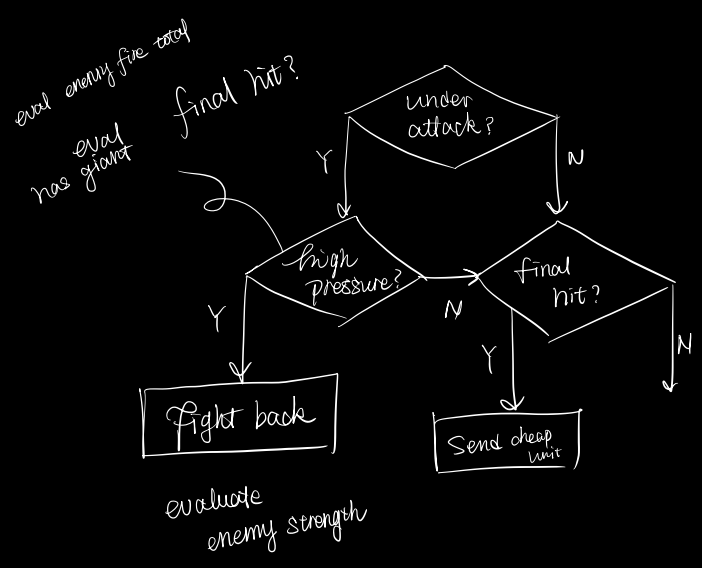 eval enemy fire total
final hit?
eval
has giant
under
attack?
Y
N
high
pressure?
final
hit?
Y
N
Y
N
fight back
Send cheap
unit
evaluate
enemy strength